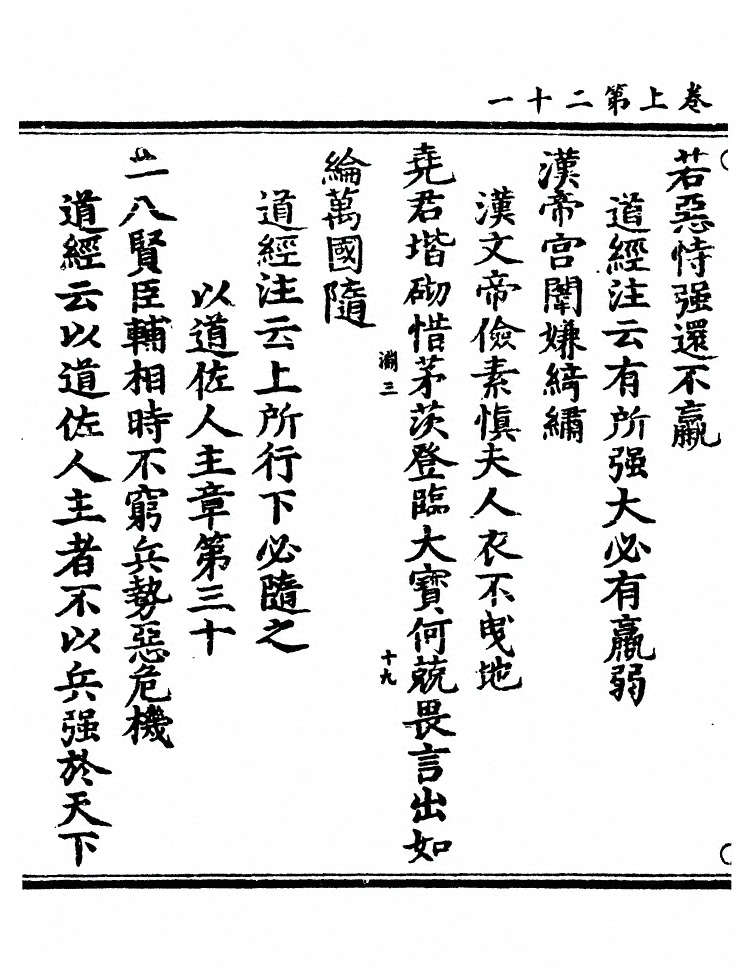 卷上第二十一
若惡恃强還不羸
道經注云有所强大必有羸弱
漢帝宫闈嫌綺繡
漢文帝儉素慎夫人衣不曳地
堯君堦砌惜茅茨登臨大寶何兢畏言出如
淵三
十九
綸萬國隨
道經注云上所行下必隨之
以道佐人主章第三十
二八賢臣輔相時不窮兵勢惡危機
道經云以道佐人主者不以兵强於天下